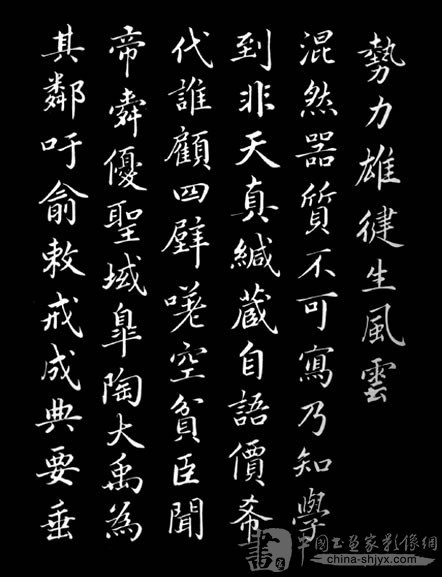 勢力雄健生風雲
混然器質不可寫乃知學
到非天真緘藏自語價希
代誰顧四壁嘆空貧臣聞
帝舜優聖域臯陶大禹為
其鄰吁俞敕戒成典要垂
中国书画家影像網
china-shjyx.com